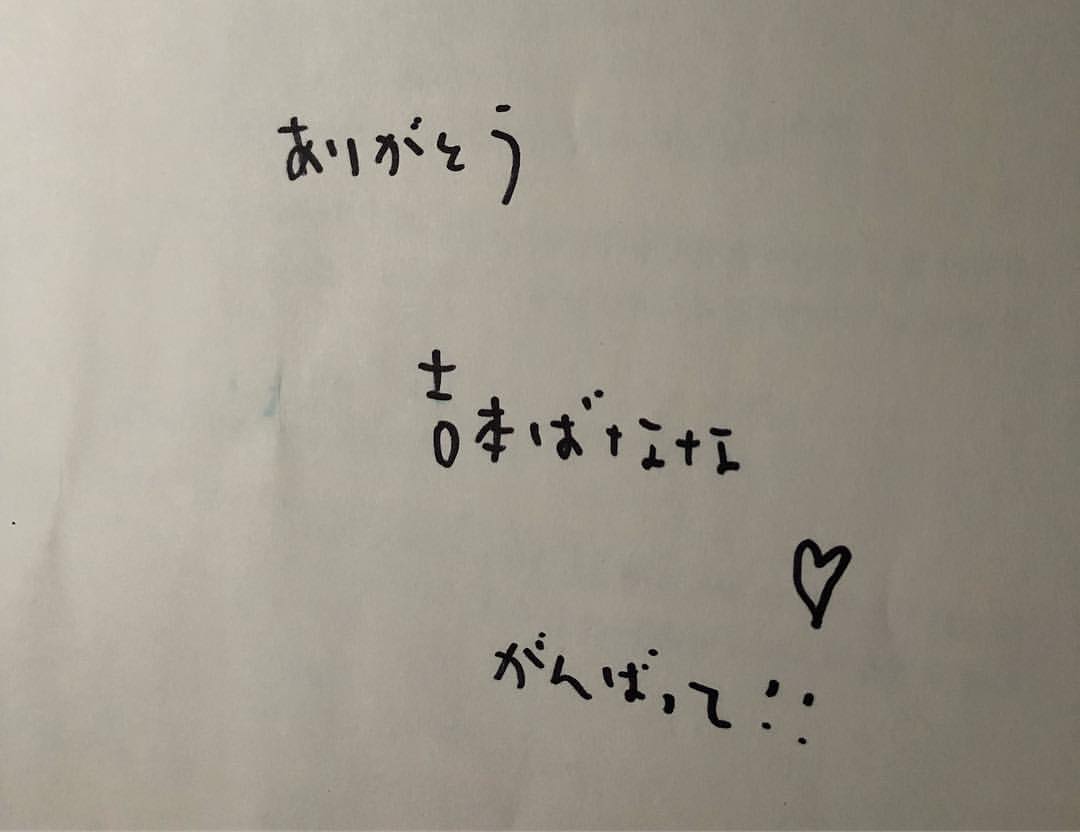 ありがとう
吉本ばなな
♡
がんばって!!